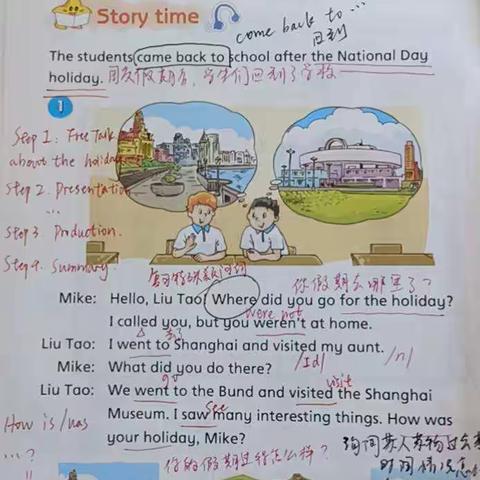 Story time
come back to ...
回到
The students came back to school after the National Day
holiday. 国庆假期后，学生们回到了学校
1
Step 1. Free Talk
about the holiday
Step 2. Presentation
...
Step 3. Production.
Step 4. Summary.
你假期去哪里了？
Mike: Hello, Liu Tao! Where did you go for the holiday?
were not
I called you, but you weren't at home.
Liu Tao: I went to Shanghai and visited my aunt.
Mike: What did you do there?
/Id/
/n/
go
visit
Liu Tao: We went to the Bund and visited the Shanghai
see
Museum. I saw many interesting things. How was
your holiday, Mike?
How is/was
...?
你的假期过得怎么样？
询问某人某物过去某
时间情况怎